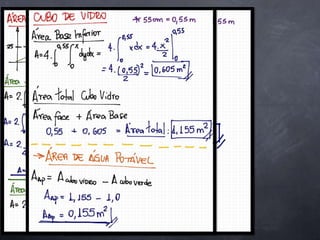 ÁREA CUBO DE VIDRO
Área Base Inferior
A=4.∫₀^0,55 ∫₀^x dydx = 4.∫₀^0,55 xdx = 4.x²/2 |₀^0,55
= 4.(0,55)²/2 = 0,605 m²
Área Total Cubo Vidro
Área face + Área Base
0,55 + 0,605 = Área total: 1,155 m²
→ ÁREA DE ÁGUA POTÁVEL
A_Ap = A cubo vidro - A cubo verde
A_Ap = 1,155 - 1,0
A_Ap = 0,155 m²